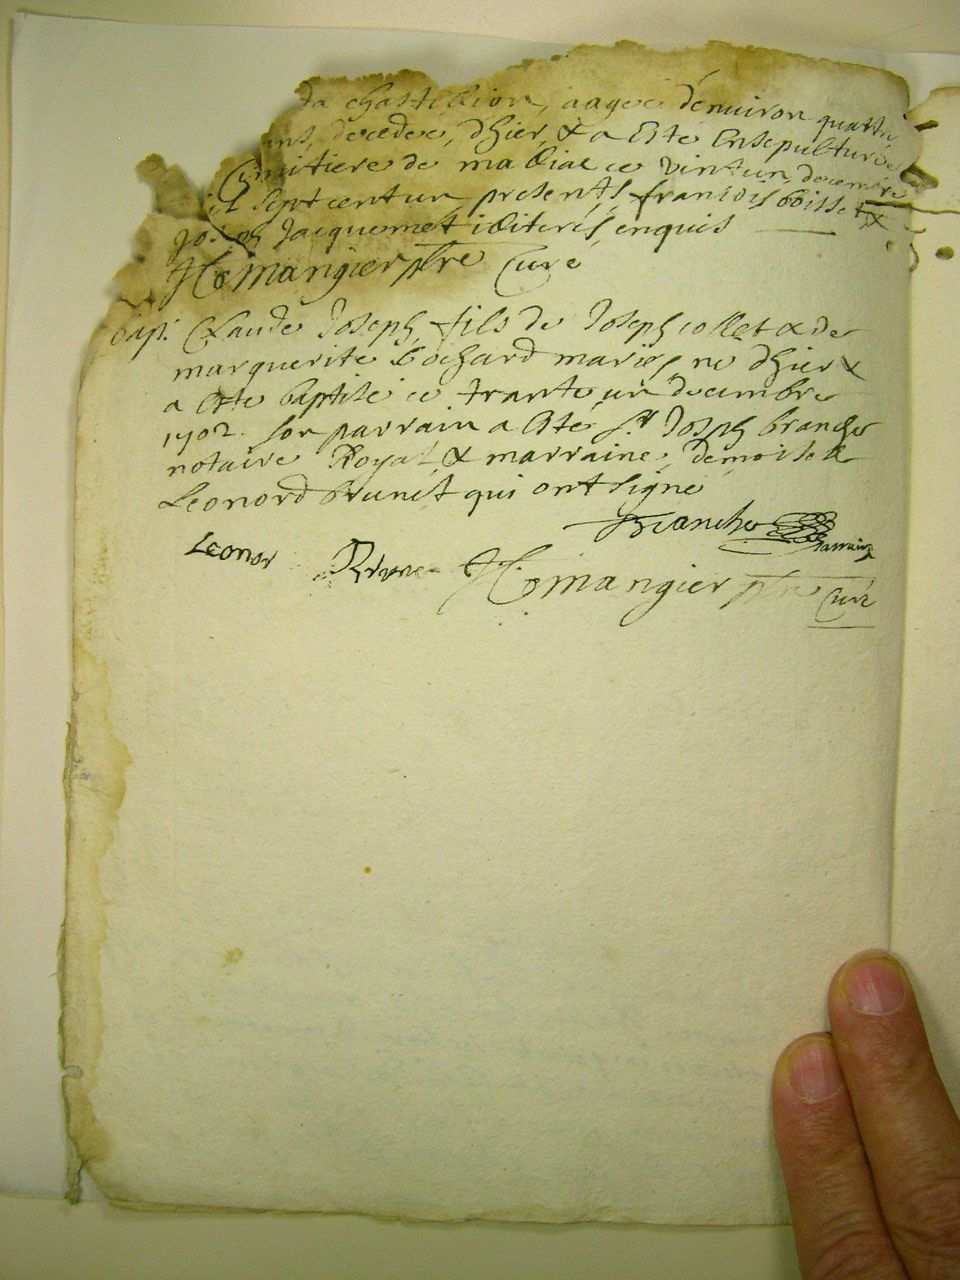 da chastillion, aagee denuiron quattre
ans, decedee, dhier, & a este Ensepulturee
Cymitiere de ma ce vintun decembre
il sept cent un presents francois boisset &
joseph Jacquemet illiterés enquis
mangier ptre Curé
bapt. Claude Joseph fils de Joseph collet & de
marguerite bochard mariés né dhier &
a este baptisé ce trante un decembre
1702. son parrain a esté Sr. Joseph branche
notaire Royal, & marraine, demoiselle
Leonord brunet qui ont signé
Branche parrain
Leonor Brune mangier ptre Curé